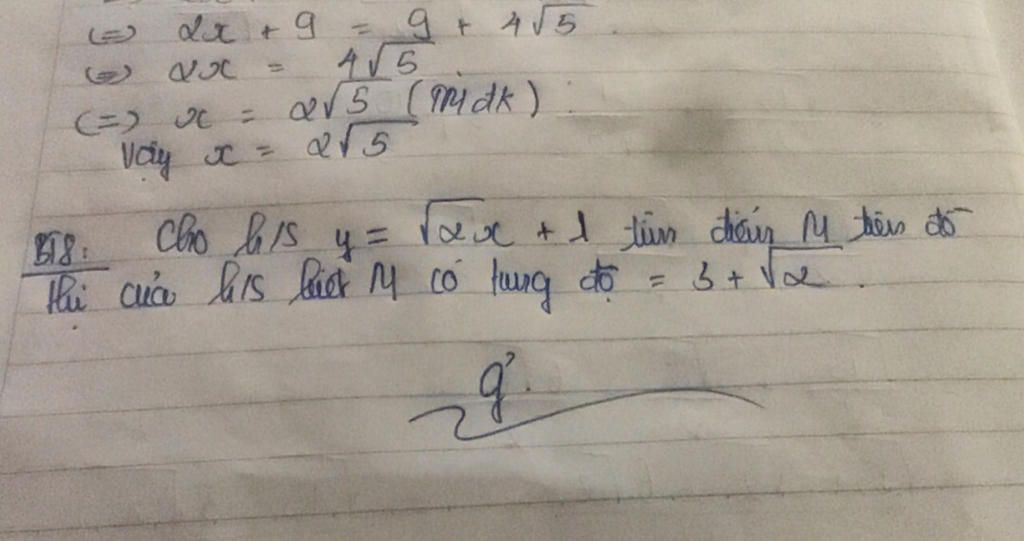 (=) 2x + 9 = 9 + 4√5.
(=) 2x = 4√5.
(=) x = 2√5 (TMđk)
Vậy x = 2√5
BT8: Cho h/s y = √2x + 1 tìm điểm M trên đồ
thị của h/s biết M có tung độ = 3 + √2.